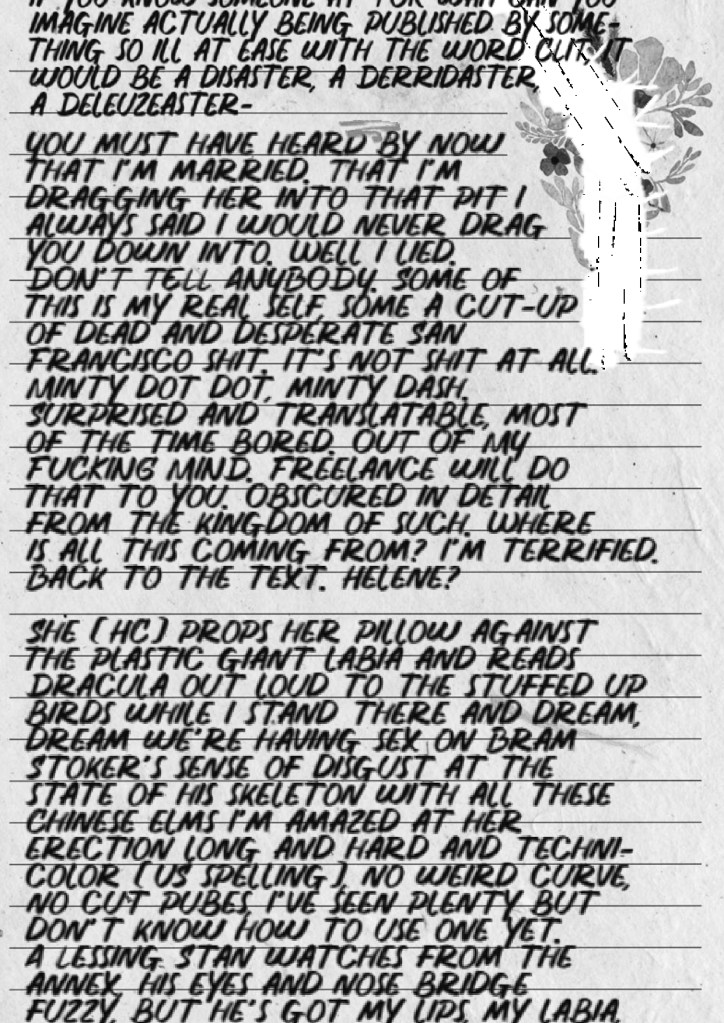 IF YOU KNOW SOMEONE AT FOR WAH CAN YOU
IMAGINE ACTUALLY BEING PUBLISHED BY SOME-
THING SO ILL AT EASE WITH THE WORD CLIT, IT
WOULD BE A DISASTER, A DERRIDASTER,
A DELEUZEASTER-
YOU MUST HAVE HEARD BY NOW
THAT I'M MARRIED. THAT I'M
DRAGGING HER INTO THAT PIT I
ALWAYS SAID I WOULD NEVER DRAG
YOU DOWN INTO. WELL I LIED.
DON'T TELL ANYBODY. SOME OF
THIS IS MY REAL SELF, SOME A CUT-UP
OF DEAD AND DESPERATE SAN
FRANCISCO SHIT. IT'S NOT SHIT AT ALL.
MINTY DOT DOT, MINTY DASH.
SURPRISED AND TRANSLATABLE, MOST
OF THE TIME BORED. OUT OF MY
FUCKING MIND. FREELANCE WILL DO
THAT TO YOU. OBSCURED IN DETAIL
FROM THE KINGDOM OF SUCH. WHERE
IS ALL THIS COMING FROM? I'M TERRIFIED.
BACK TO THE TEXT. HELENE?
SHE (HC) PROPS HER PILLOW AGAINST
THE PLASTIC GIANT LABIA AND READS
DRACULA OUT LOUD TO THE STUFFED UP
BIRDS WHILE I STAND THERE AND DREAM,
DREAM WE'RE HAVING SEX ON BRAM
STOKER'S SENSE OF DISGUST AT THE
STATE OF HIS SKELETON WITH ALL THESE
CHINESE ELMS I'M AMAZED AT HER
ERECTION LONG AND HARD AND TECHNI-
COLOR (US SPELLING), NO WEIRD CURVE,
NO CUT PUBES, I'VE SEEN PLENTY BUT
DON'T KNOW HOW TO USE ONE YET.
A LESSING STAN WATCHES FROM THE
ANNEX, HIS EYES AND NOSE BRIDGE
FUZZY, BUT HE'S GOT MY LIPS, MY LABIA,